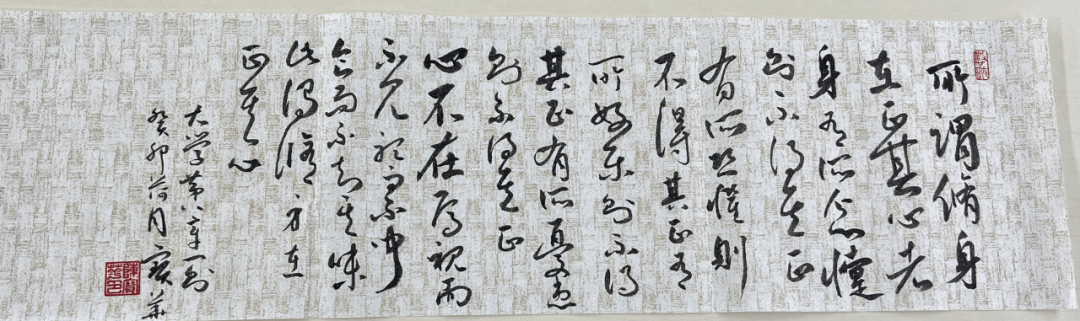 所謂脩身
在正其心者
身有所忿懥
則不得其正
有所恐懼則
不得其正有
所好樂則不得
其正有所憂患
則不得其正
心不在焉視而
不見聽而不聞
食而不知其味
此謂脩身在
正其心
大学第八章一則
癸卯荷月寶華